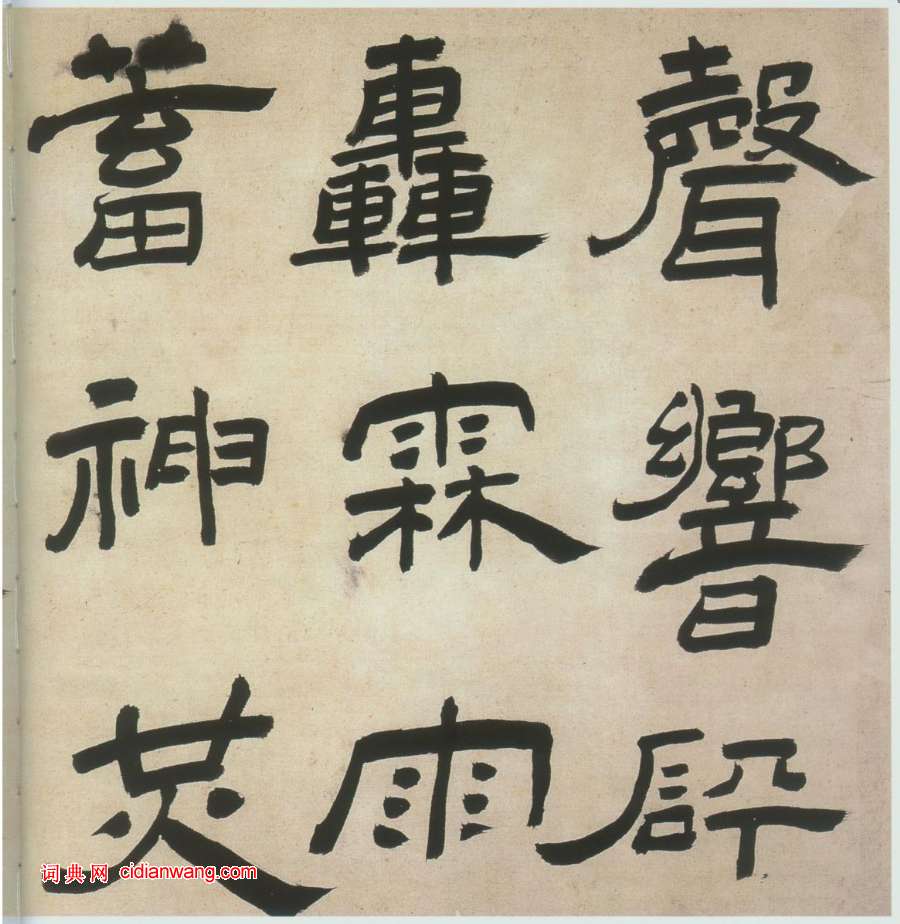 聲響
轟霖雨
蓄神炗
词典网 cidianwang.com